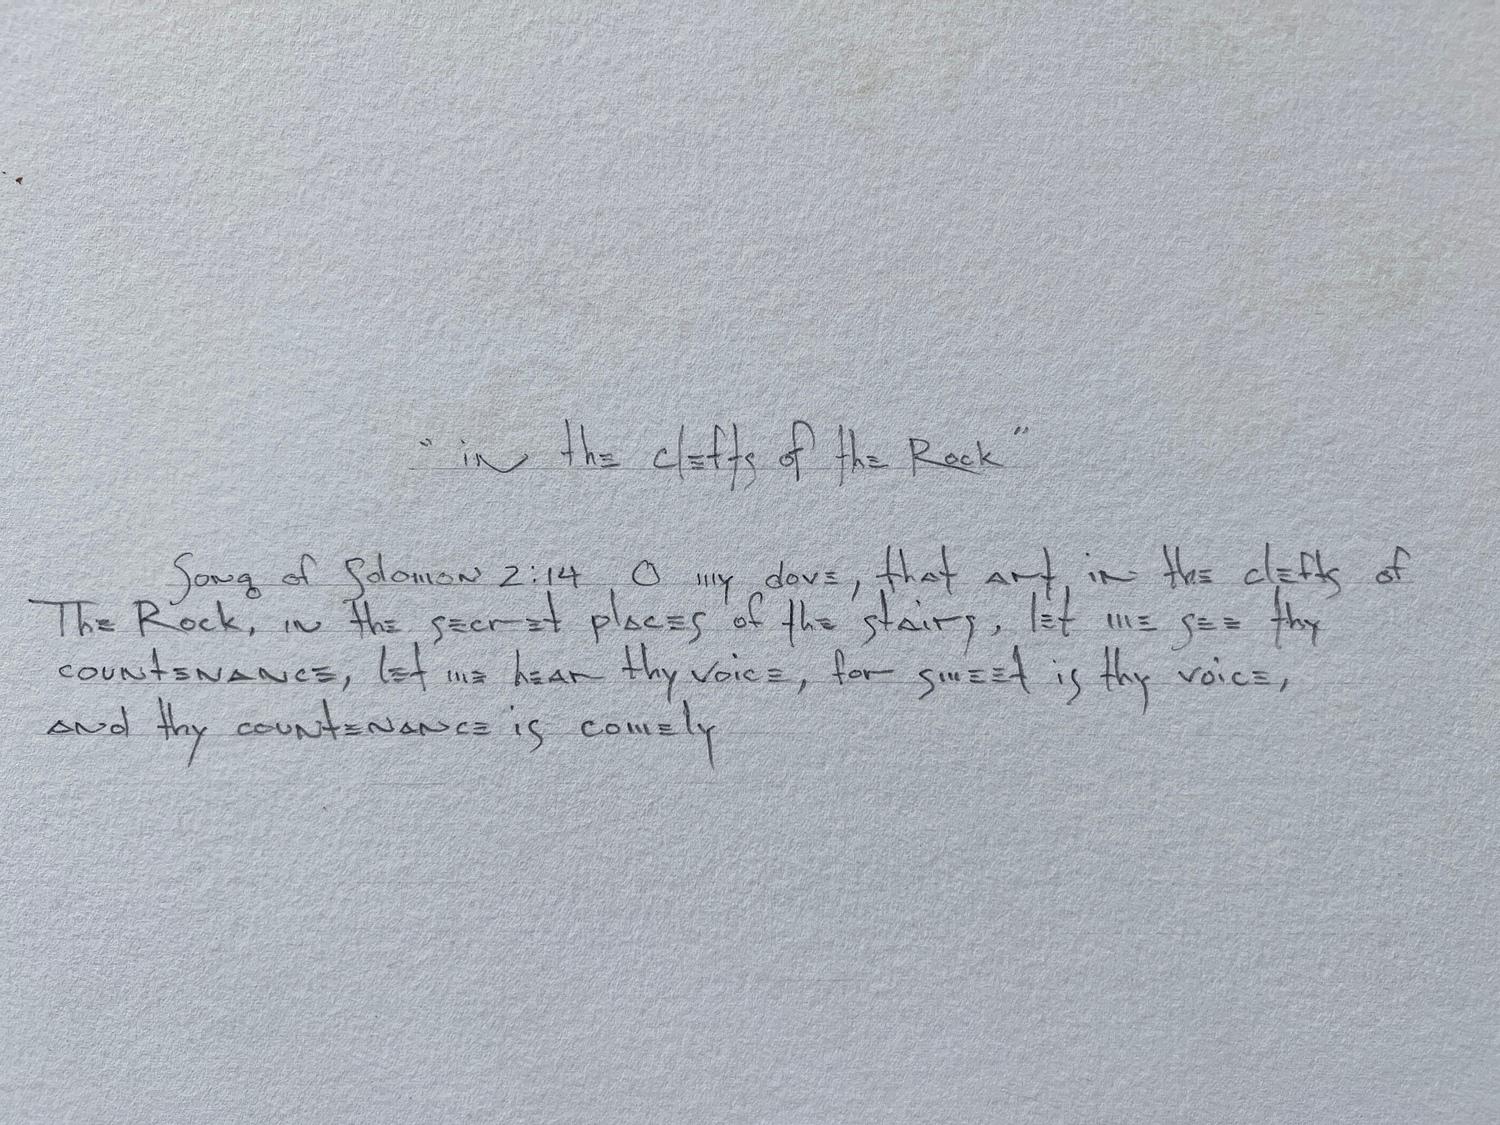 "in the clefts of the Rock"
Song of Solomon 2:14 O my dove, that art in the clefts of
The Rock, in the secret places of the stairs, let me see thy
countenance, let me hear thy voice, for sweet is thy voice,
and thy countenance is comely